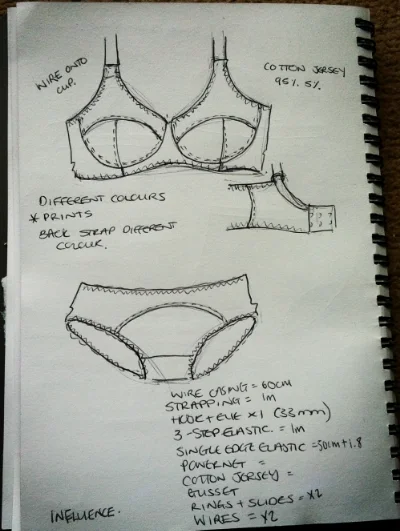 WIRE ONTO
CUP.
COTTON JERSEY
95% 5%
DIFFERENT COLOURS
* PRINTS
BACK STRAP DIFFERENT
COLOUR.
WIRE CASING = 60CM
STRAPPING = 1M
HOOK + EYE X 1 (33mm)
3-STEP ELASTIC = 1M
SINGLE EDGE ELASTIC = 501M + 1.8
POWERNET =
COTTON JERSEY =
GUSSET
RINGS + SLIDES = X2
WIRES = X2
INFLUENCE.